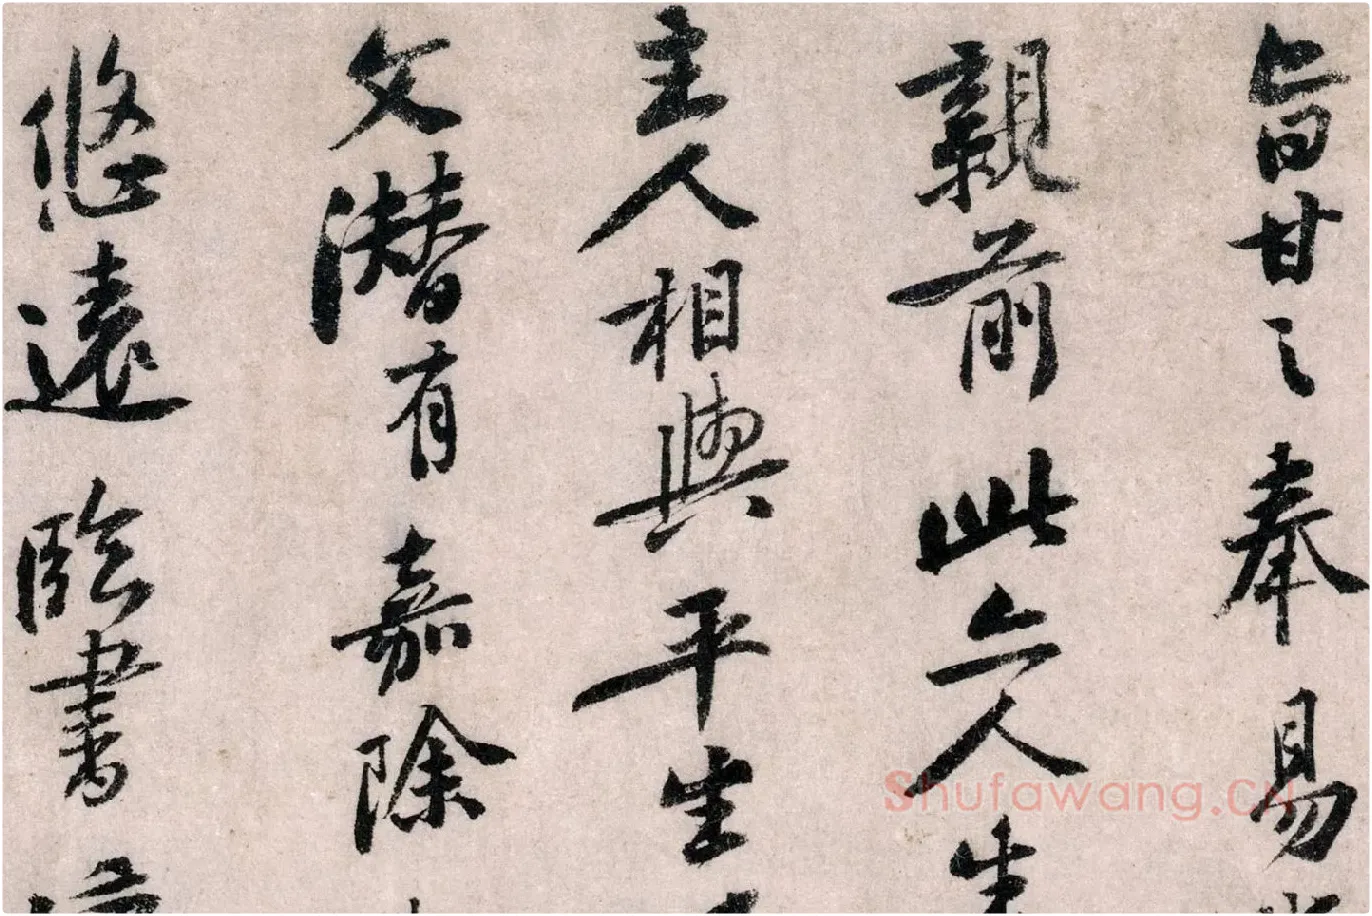 旨甘之奉易
親前此亦人生
主人相與平生
文潛有嘉除
悠遠臨書
Shufawang.cn